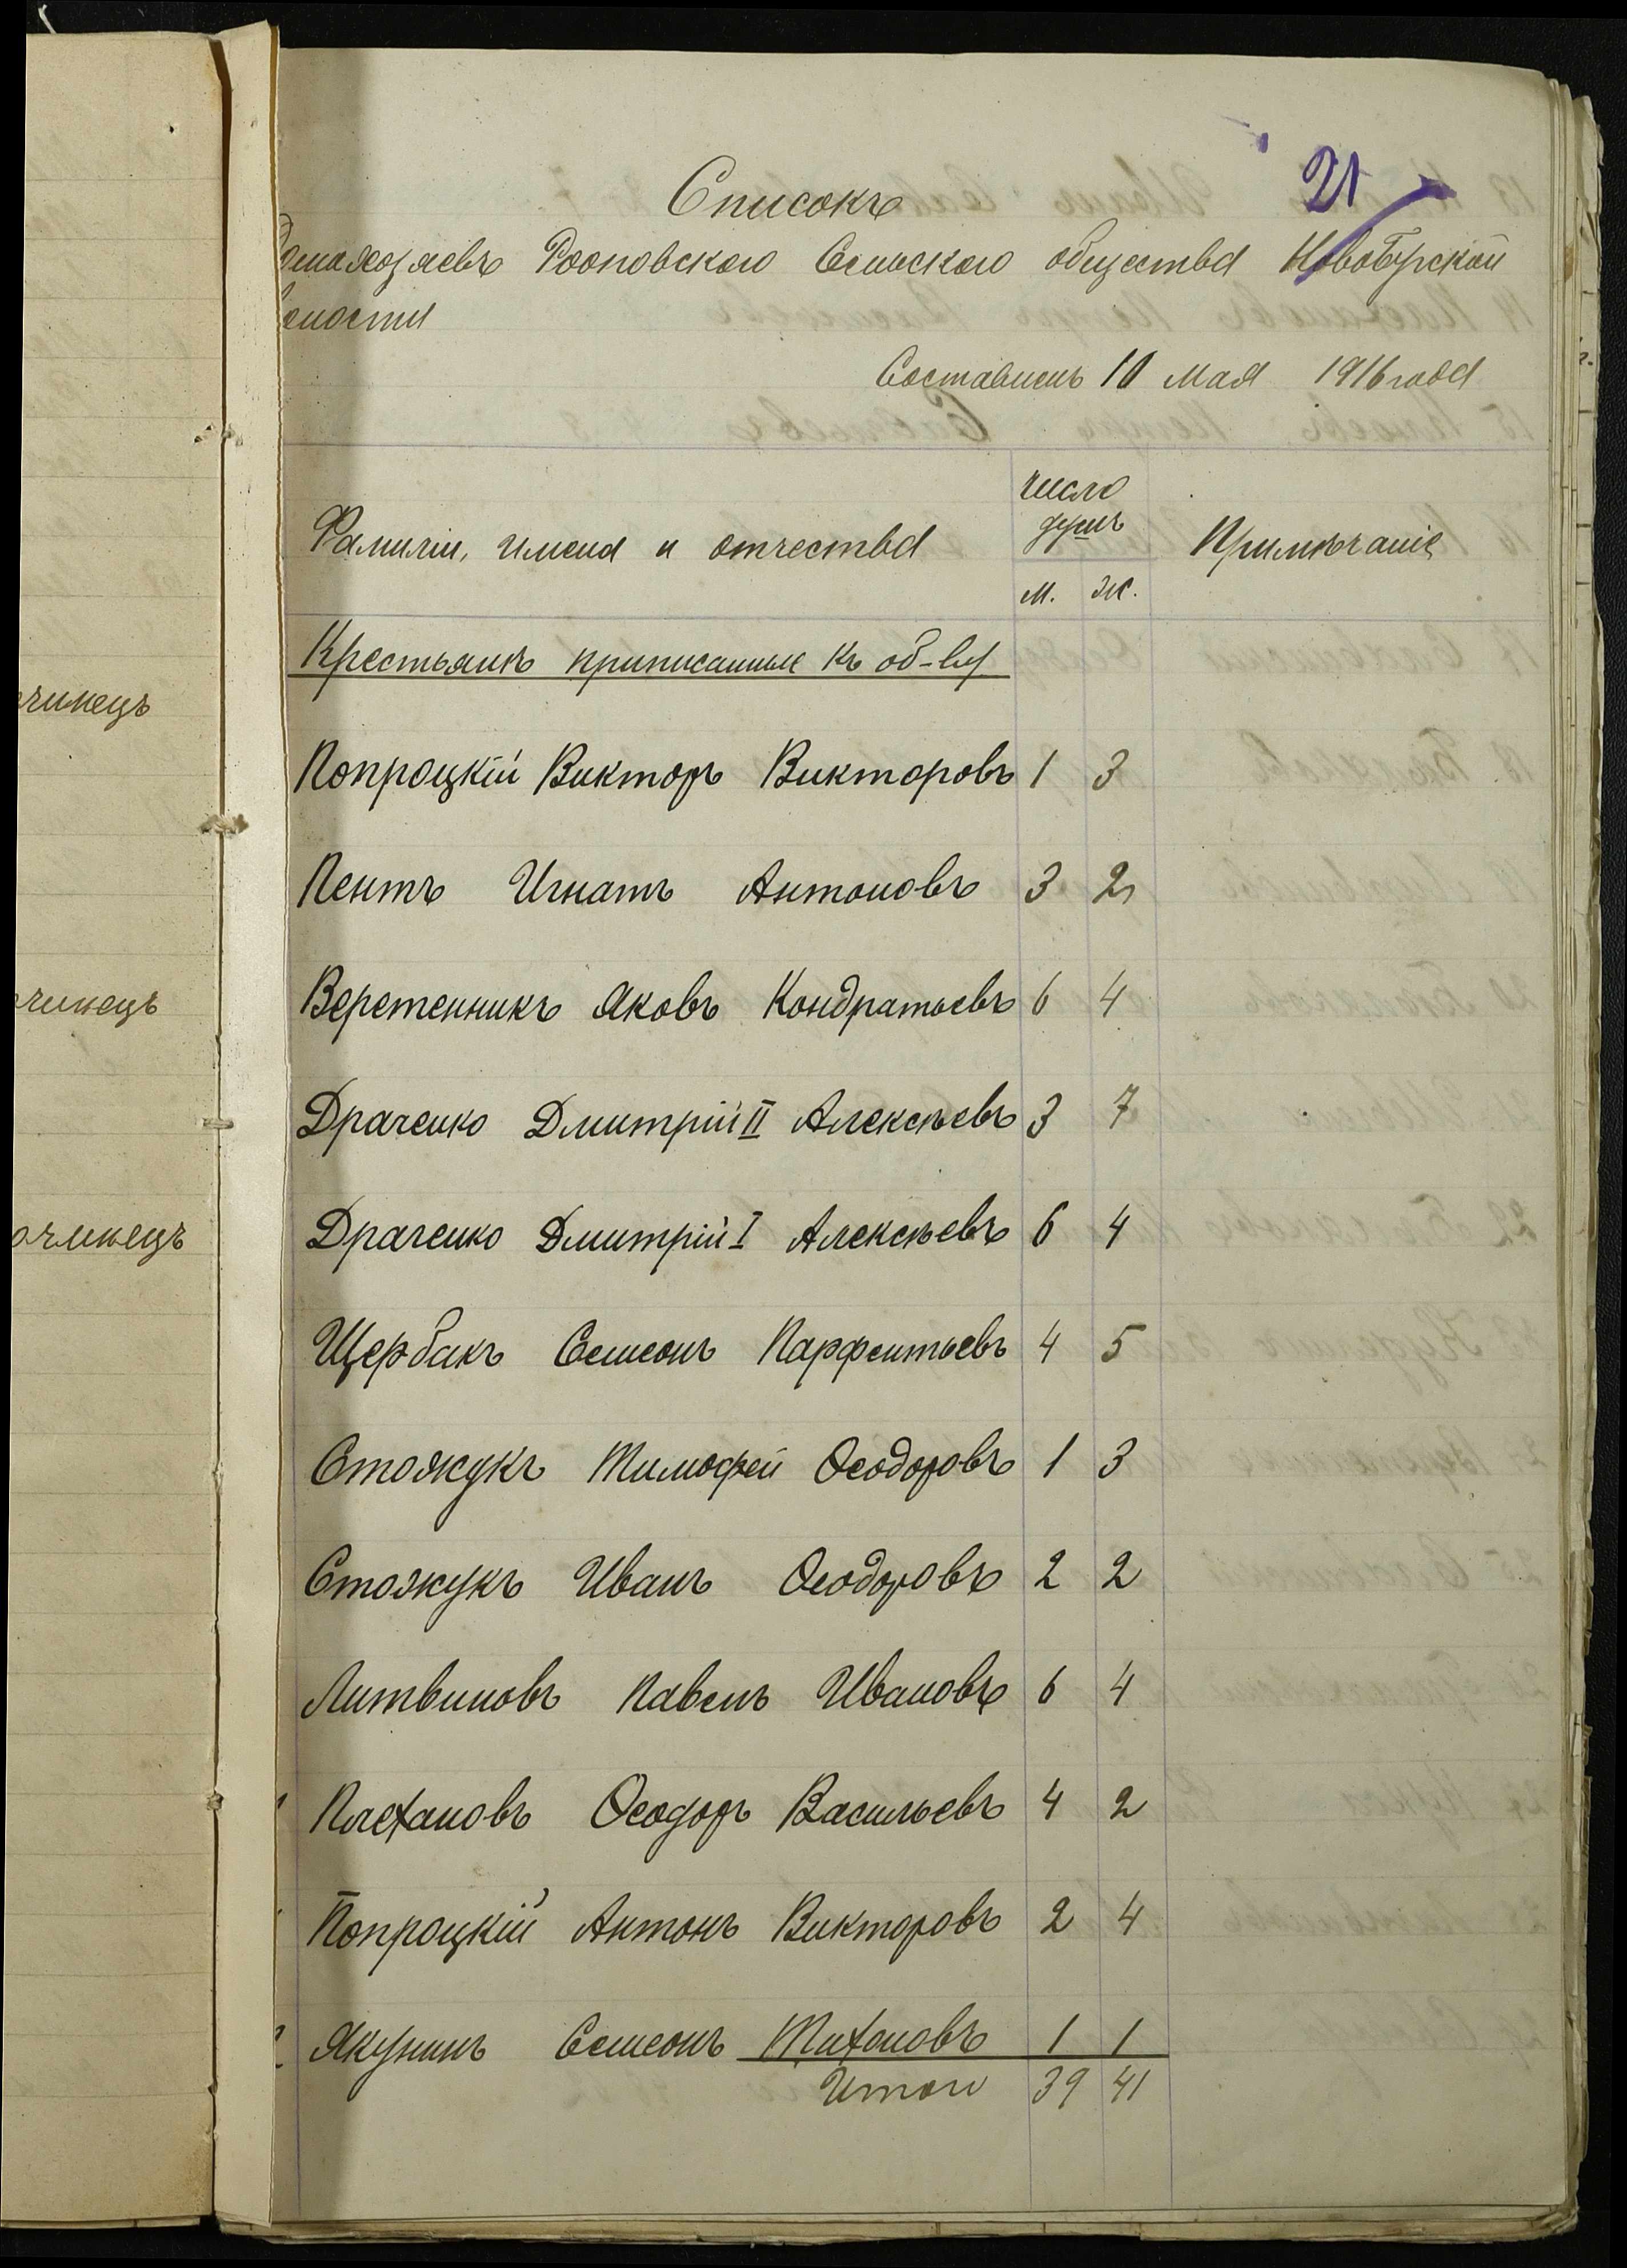 21
Списокъ
домахозяевъ Рооповскаго Сельскаго общества Новобугской
волости
Составленъ 10 мая 1916 года
число
душъ
Фамиліи, имена и отчества
Примѣчаніе
м. ж.
Крестьянъ приписанныхъ къ об-ву
Попроцкій Викторъ Викторовъ 1 3
Пентъ Игнатъ Антоновъ 3 2
Веретенникъ Яковъ Кондратьевъ 6 4
Драченко Дмитрій II Алексѣевъ 3 7
Драченко Дмитрій I Алексѣевъ 6 4
Щербакъ Семенъ Парфентьевъ 4 5
Стожукъ Тимофей Ѳеодоровъ 1 3
Стожукъ Иванъ Ѳеодоровъ 2 2
Литвиновъ Павелъ Ивановъ 6 4
Плехановъ Ѳеодоръ Васильевъ 4 2
Попроцкій Антонъ Викторовъ 2 4
Якунинъ Семенъ Тихоновъ 1 1
Итого 39 41